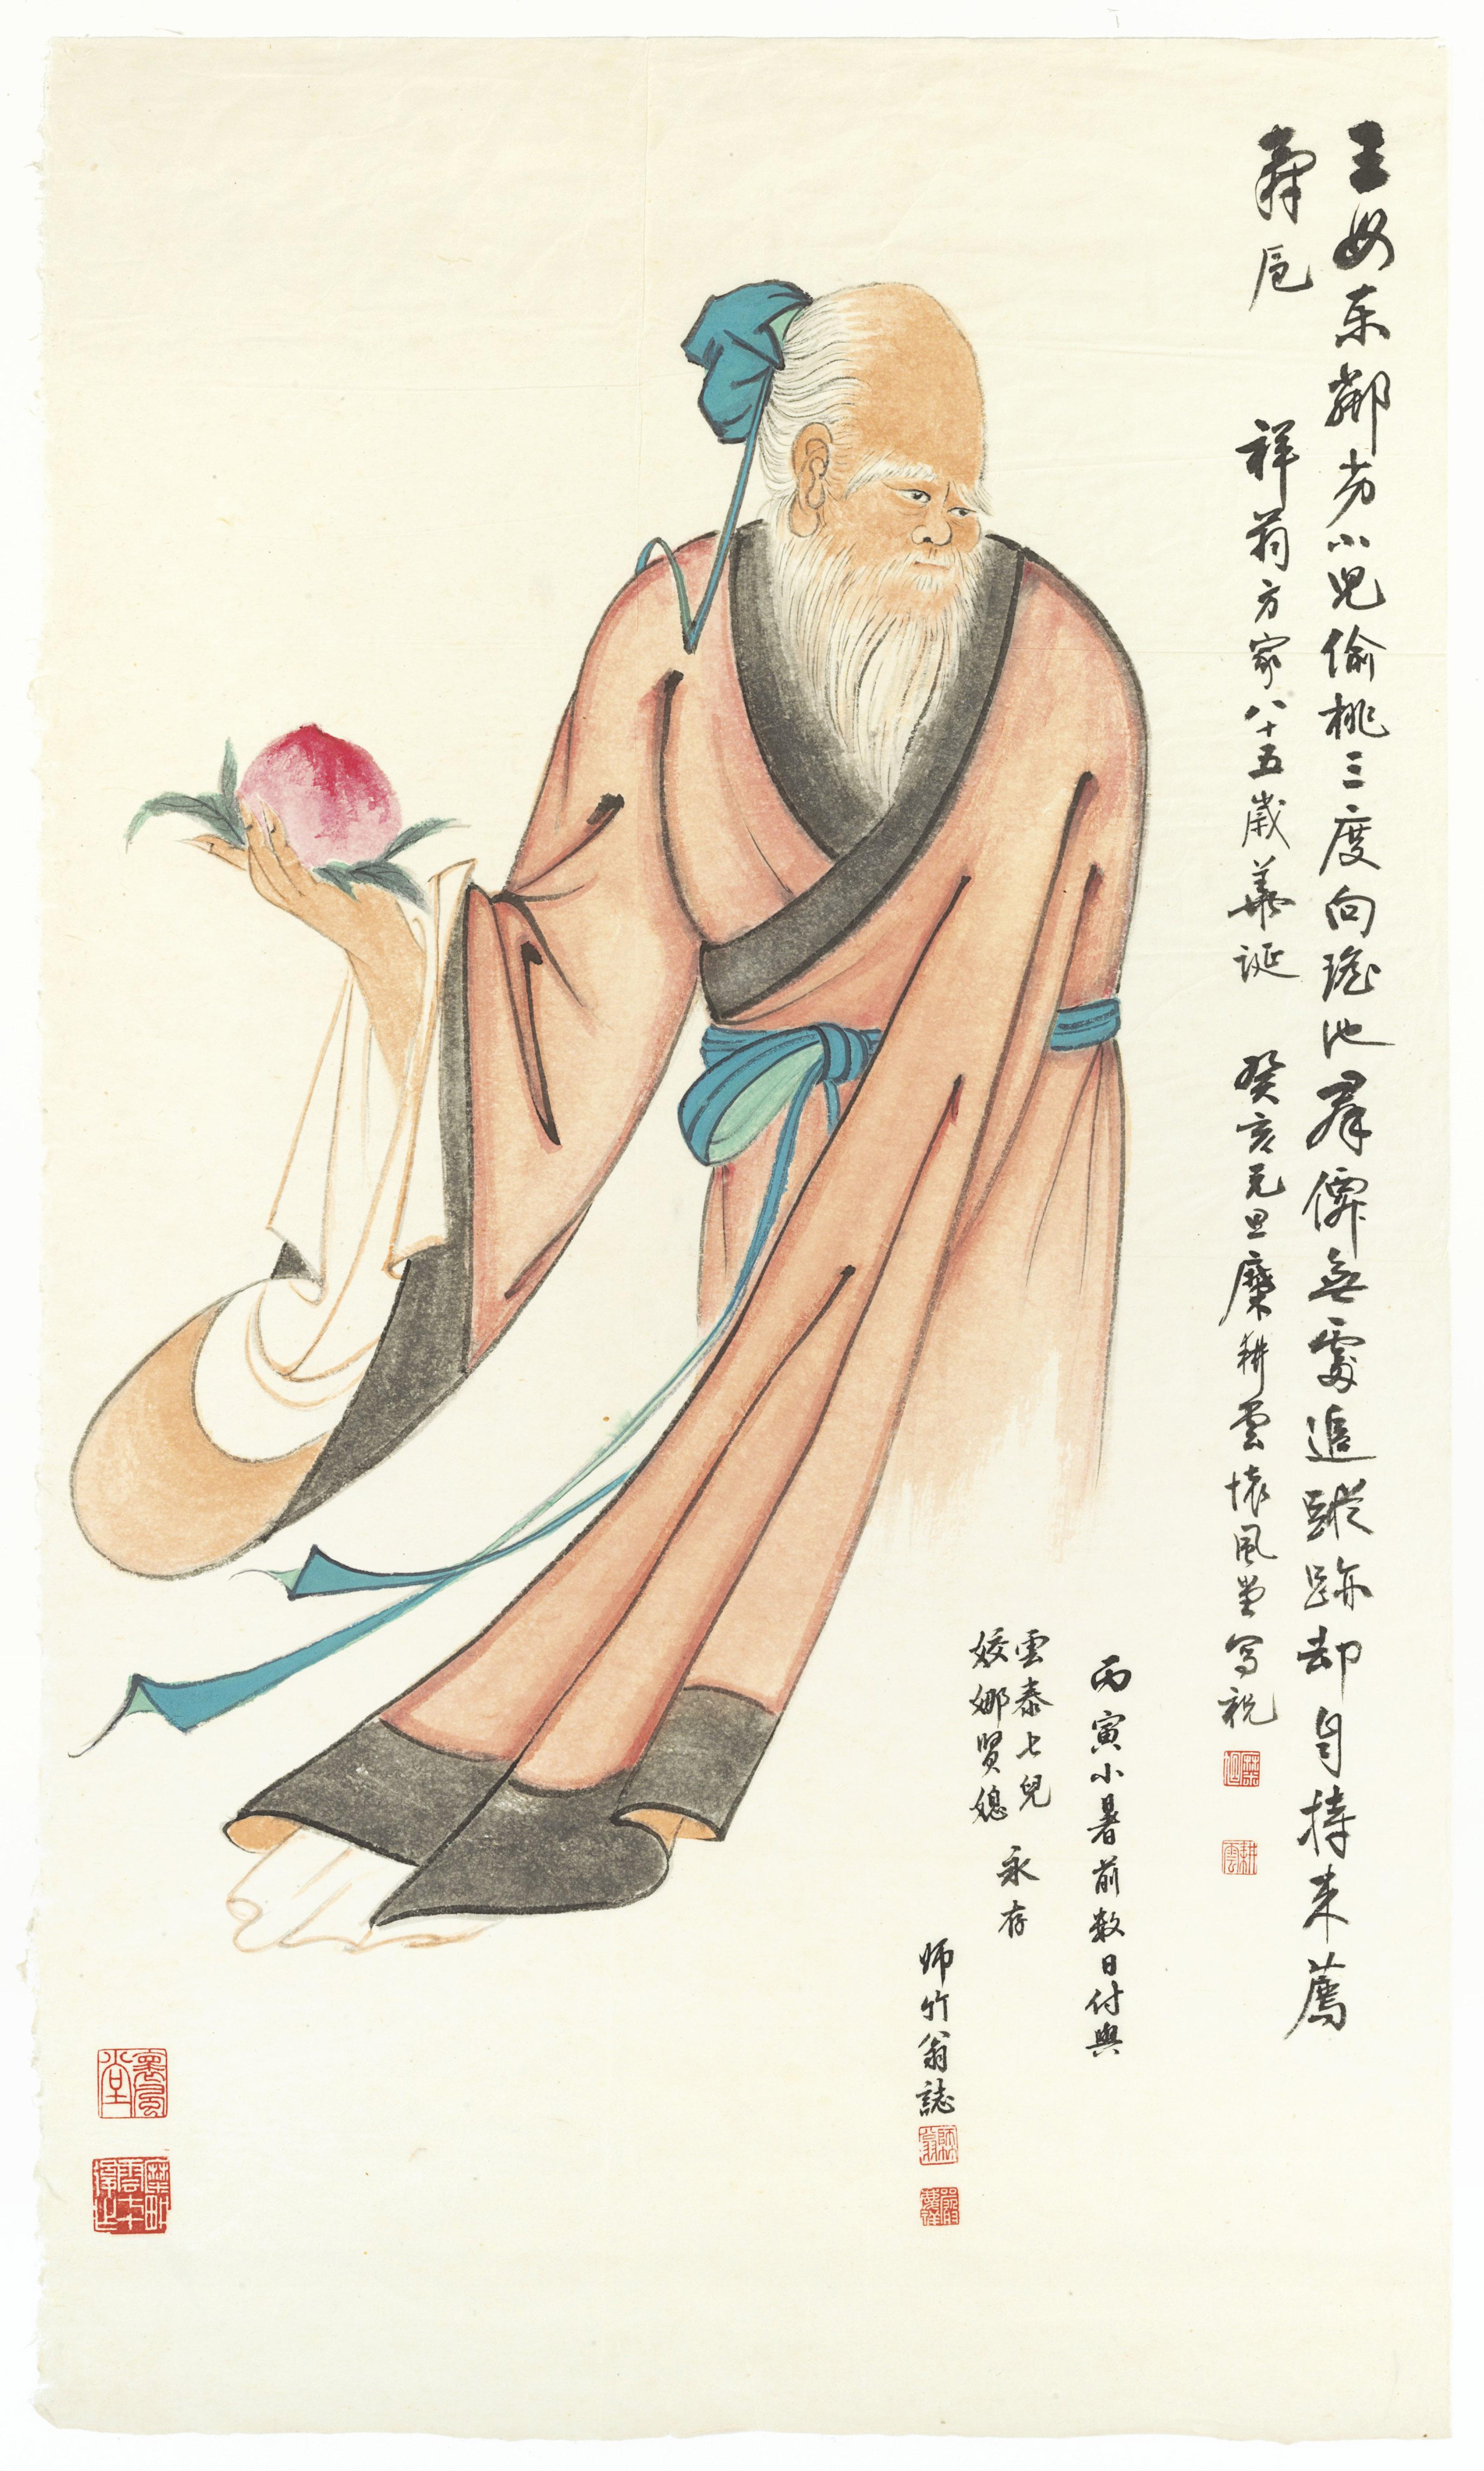 王母東鄰劣小兒偷桃三度向瑤池羣僊無處追蹤跡却自持來薦
壽卮　祥翁方家八十五歲華誕　癸亥元旦糜耕雲懷風堂寫祝
丙寅小暑前數日付與
雲泰七兒
姣娜賢媳
永存
師竹翁誌
懷風堂